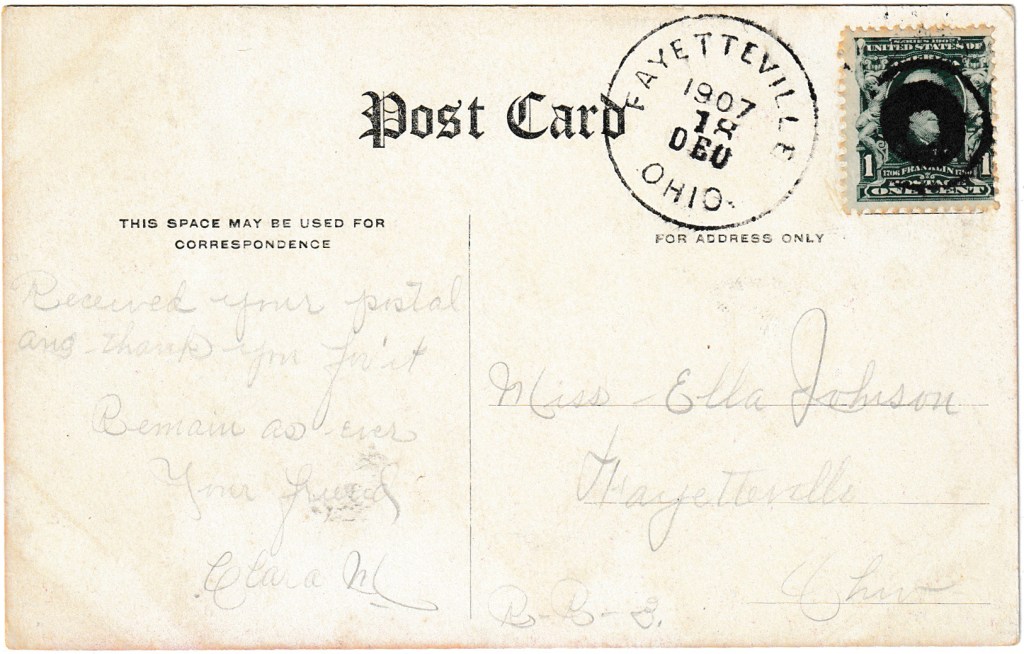 Post Card
FAYETTEVILLE
1907
18
DEC
OHIO.
SERIES 1902
UNITED STATES OF
AMERICA
1 1
1706 FRANKLIN 1790
POSTAGE
ONE CENT
THIS SPACE MAY BE USED FOR
CORRESPONDENCE
FOR ADDRESS ONLY
Received your postal
and thank you for it
Remain as ever
Your friend
Clara M
Miss Ella Johnson
Fayetteville
Ohio